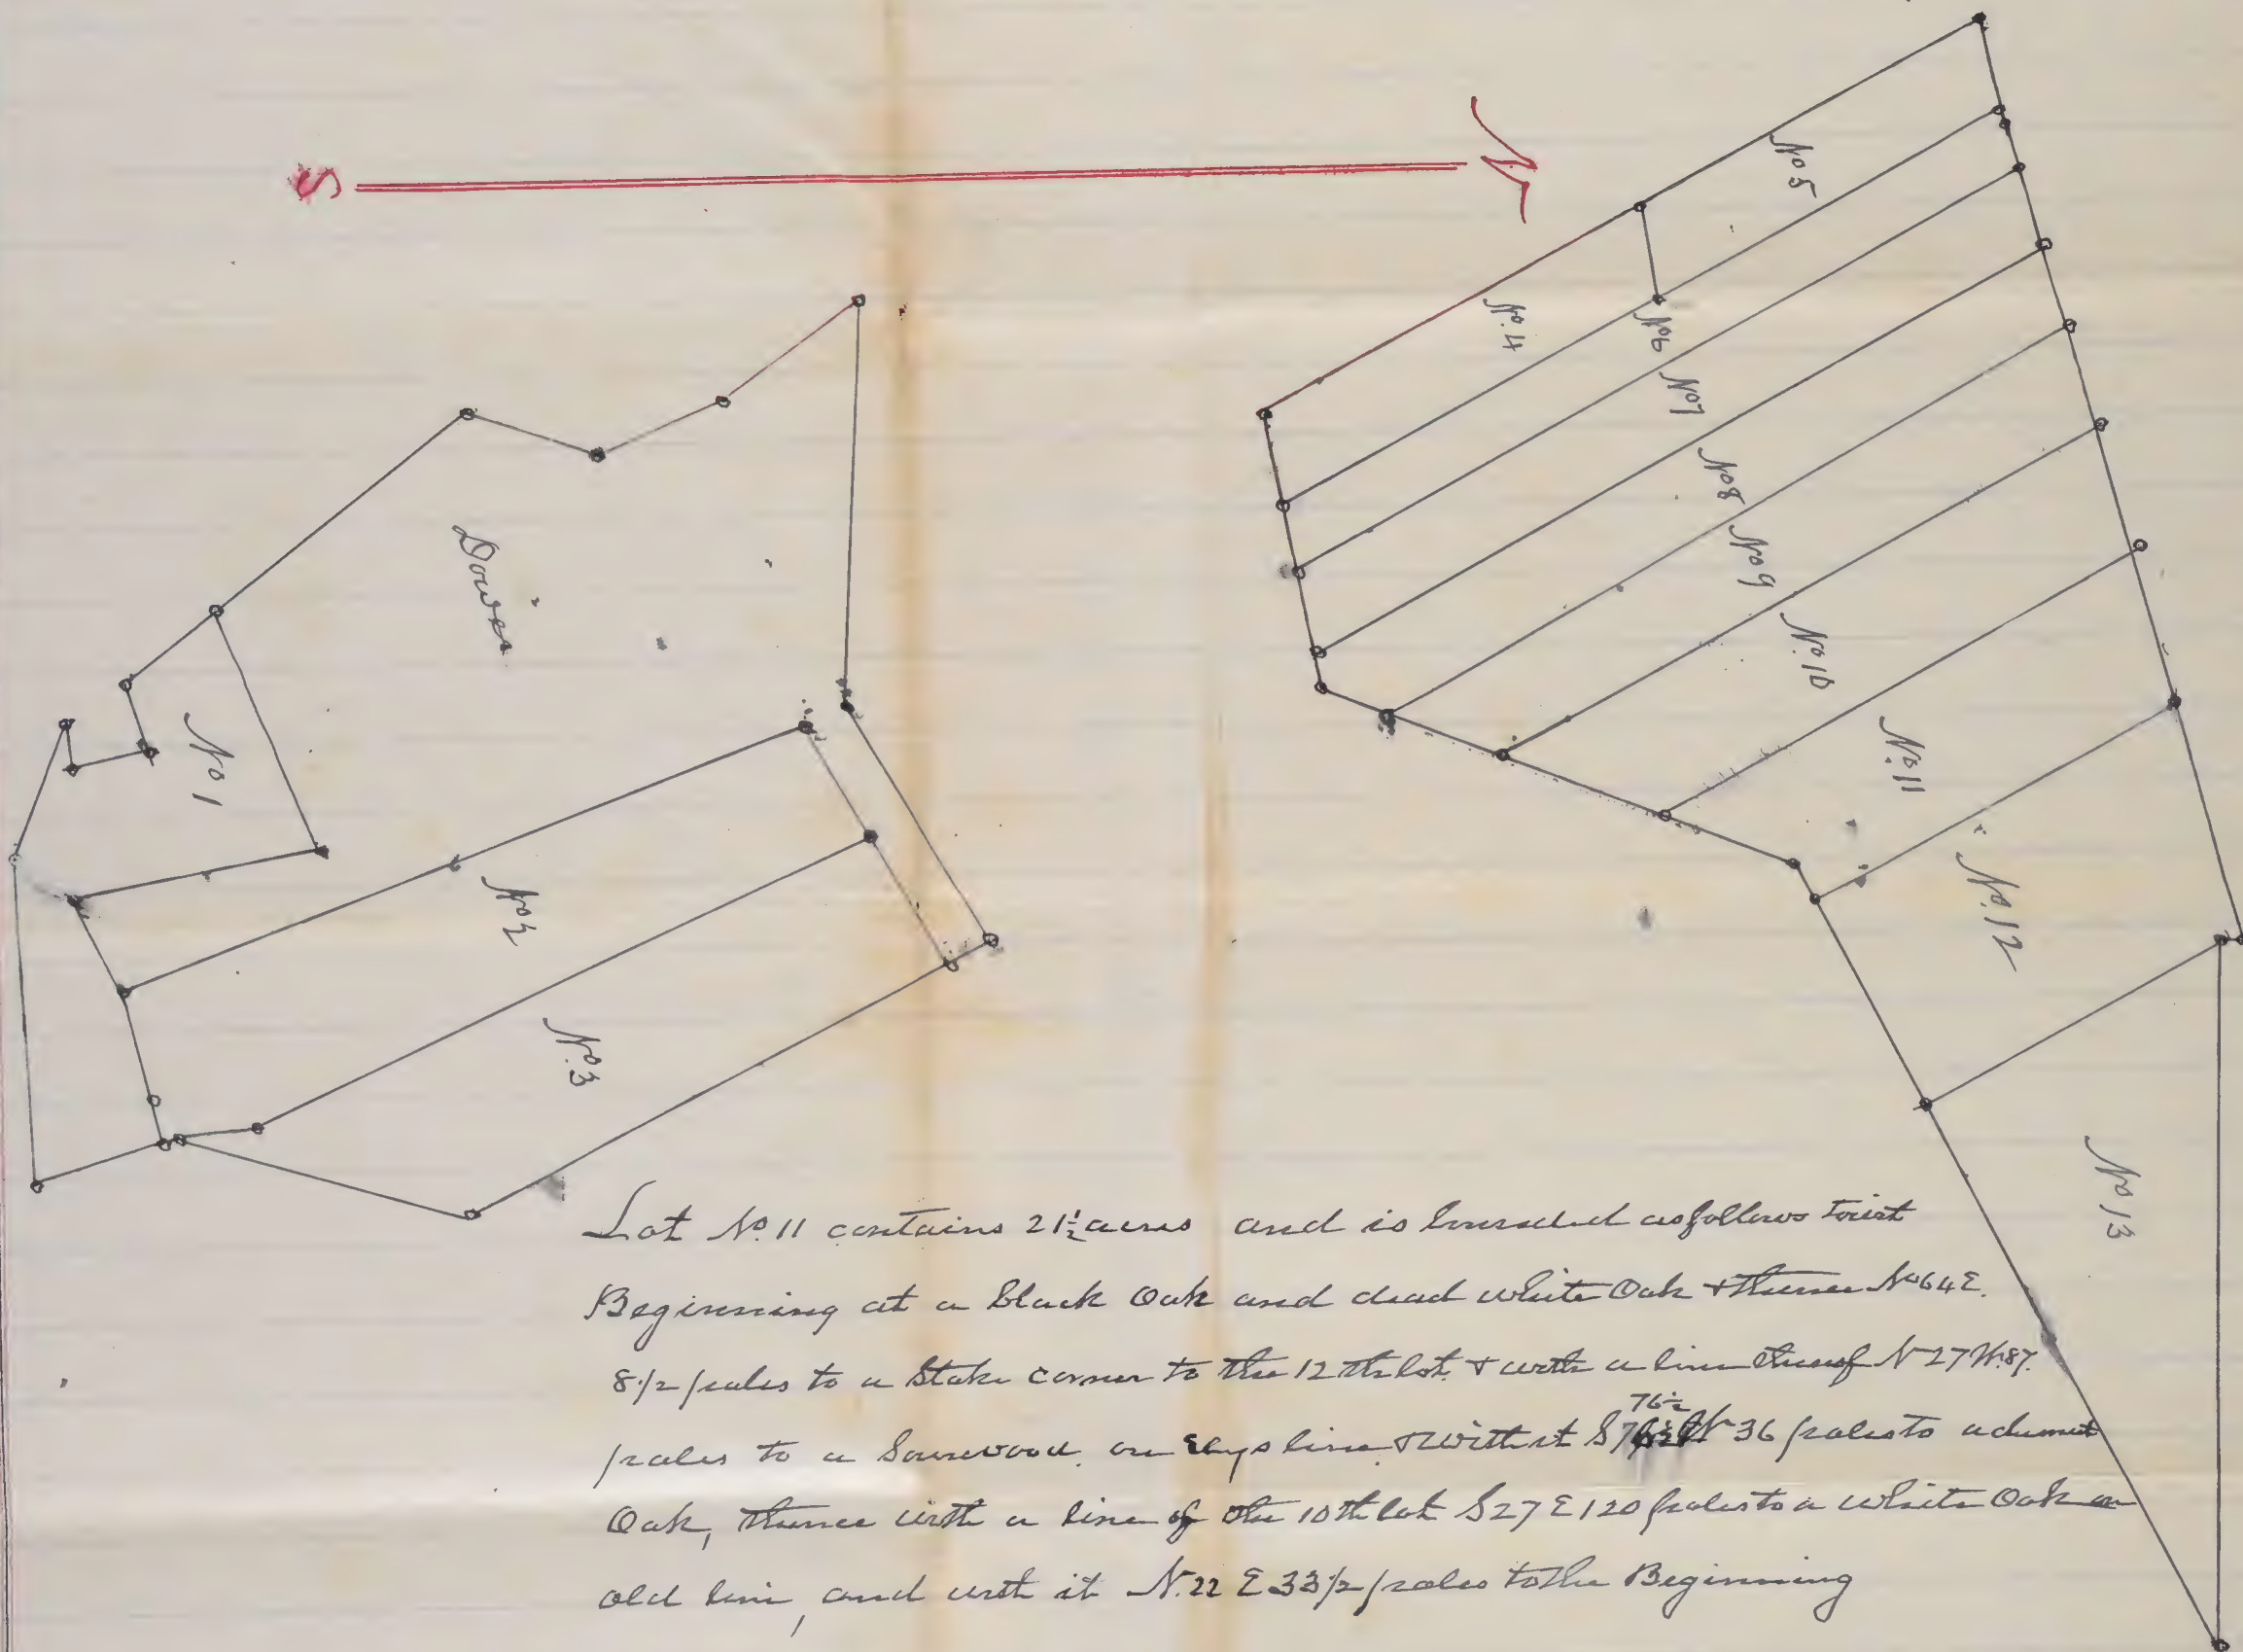 S
N
No 5
No. 4
No 6
No 7
No 8
No 9
No. 10
No. 11
No. 12
No 13
Dower
No 1
No 2
No. 3
Lot No. 11 contains 21½ acres and is bounded as follows towit
Beginning at a black Oak and dead white Oak & thence N 64 E.
8 1/2 poles to a Stake corner to the 12 th lot & with a line thereof N 27 W. 87.
76½
poles to a Sourwood on line & with it S W 36 poles to a
Oak, thence with a line of the 10 th lot S 27 E 120 poles to a white Oak on
old line, and with it N. 22 E 33 1/2 poles to the Beginning